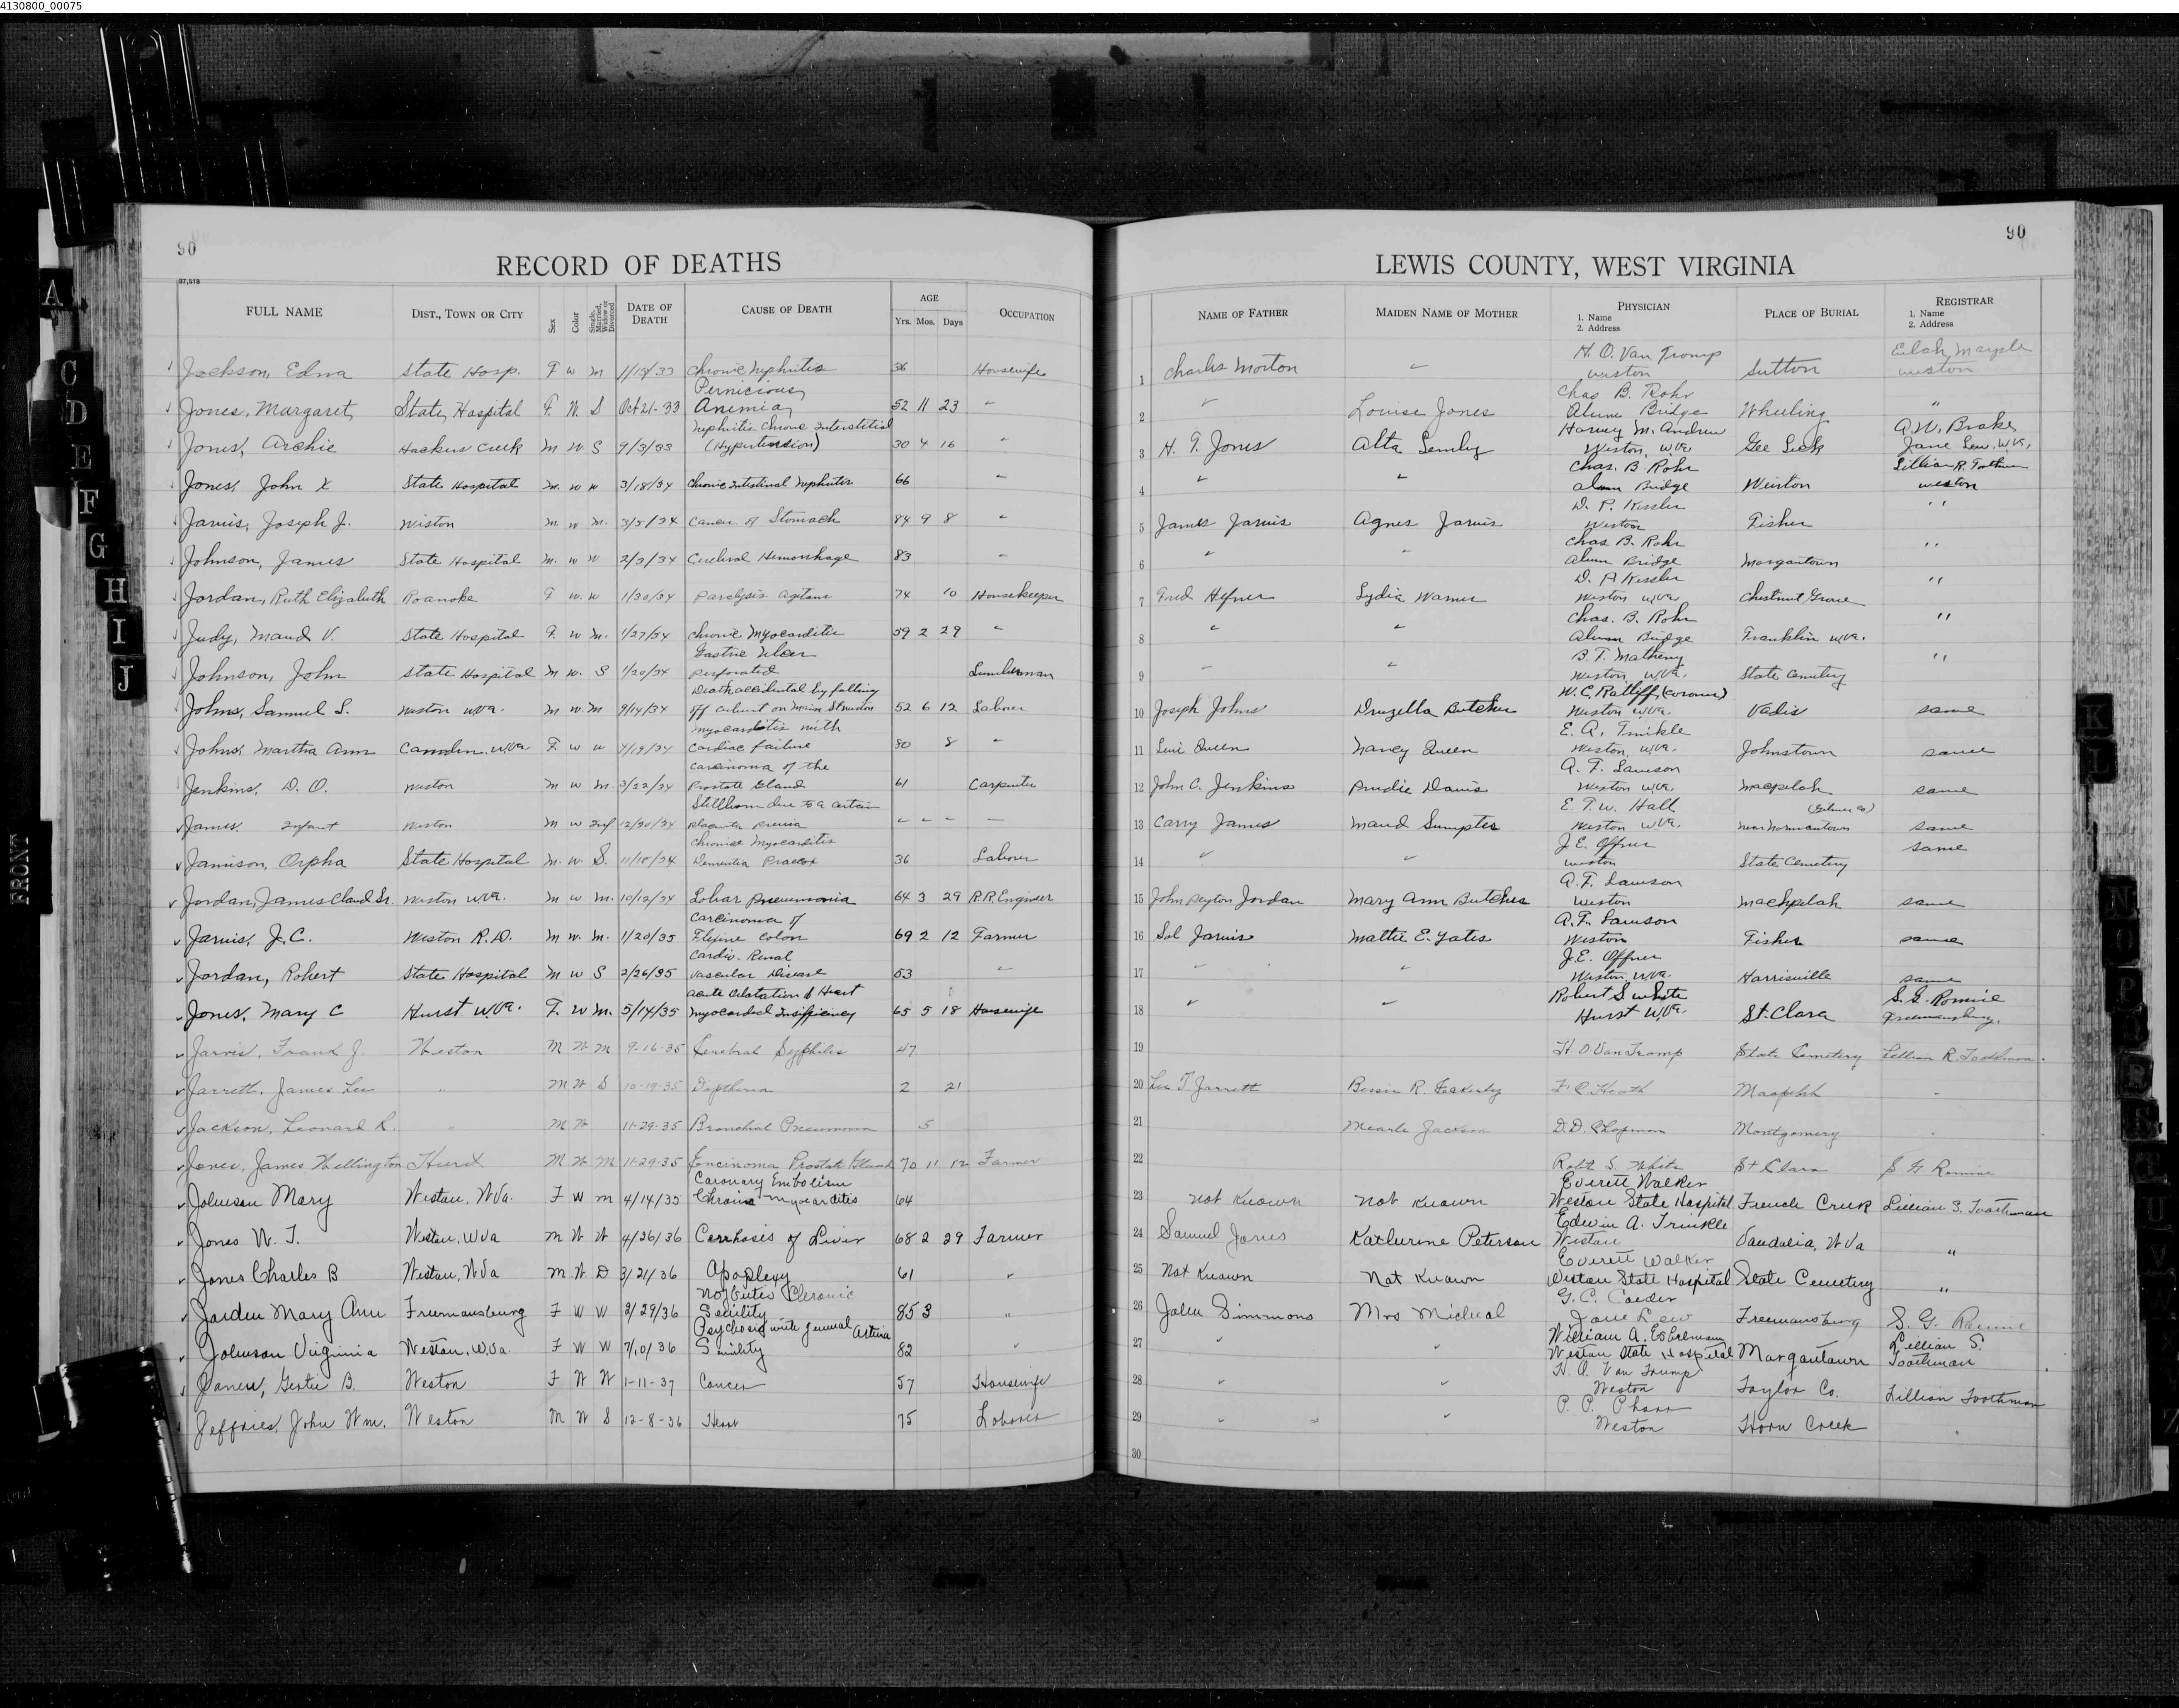 4130800_00075
90
RECORD OF DEATHS
37,518
FULL NAME DIST., TOWN OR CITY Sex Color Single, Married, Widow or Divorced DATE OF DEATH CAUSE OF DEATH AGE Yrs. Mos. Days OCCUPATION
Jackson, Edna State Hosp. F w m 1/13/33 Chronic Nephritis 56 Housewife
Jones, Margaret State Hospital F. W. S Oct 21-33 Pernicious Anemia 52 11 23 "
Jones, Archie Hackers Creek M W S 9/3/33 Nephritis Chronic Interstitial (Hypertension) 30 4 16 "
Jones, John K State Hospital m. w w 3/18/34 Chronic Intestinal Nephritis 66 "
Jarvis, Joseph J. Weston m. w m. 3/5/34 Cancer of Stomach 84 9 8 "
Johnson, James State Hospital m. w w 2/3/34 Cerebral Hemorrhage 83 "
Jordan, Ruth Elizabeth Roanoke F w. w 1/30/34 Paralysis agitans 74 10 Housekeeper
Judy, Maud V. State Hospital F. w m. 1/27/34 Chronic Myocarditis 59 2 29 "
Johnson, John State Hospital m w. S 1/20/34 Gastric Ulcer perforated Lumberman
Johns, Samuel S. Weston W.Va. m w. m 9/14/34 Death accidental by falling off culvert on Main St Weston 52 6 12 Laborer
Johns, Martha Ann Camden W.Va. F w w 4/19/34 Myocarditis with Cardiac failure 80 8 "
Jenkins, D. O. Weston m w m. 3/22/34 Carcinoma of the Prostate Gland 61 Carpenter
James, Infant Weston m w Inf 12/30/34 Stillborn due to a certain Placenta Previa - - - -
Jamison, Orpha State Hospital m. w. S. 11/18/34 Chronic Myocarditis Dementia Praecox 36 Laborer
Jordan, James Claud Sr. Weston W.Va. m w m. 10/12/34 Lobar Pneumonia 64 3 29 R.R. Engineer
Jarvis, J.C. Weston R.D. m w. m. 1/20/35 Carcinoma of Flexine Colon 69 2 12 Farmer
Jordan, Robert State Hospital m w S 2/26/35 Cardio-Renal Vascular Disease 53 "
Jones, Mary C Hurst W.Va. F. w m. 5/14/35 Acute dilatation of Heart Myocardial Insufficiency 65 5 18 Housewife
Jarvis, Frank J. Weston M W M 9-16-35 Cerebral Syphilis 47
Jarrett, James Lee " M W S 10-19-35 Diptheria 2 21
Jackson, Leonard R. " M W 11-29-35 Bronchial Pneumonia 5
Jones, James Wellington Hurst M W M 11-29-35 Prostate Gland 70 11 12 Farmer
Johnson Mary Weston, W.Va. F W m 4/14/35 Coronary Embolism Chronic Myocarditis 64
Jones W. T. Weston, W.Va m W W 4/26/36 Cerrhosis of Liver 68 2 29 Farmer
Jones Charles B Weston, W.Va m W D 3/21/36 Apoplexy 61 "
Jorden Mary Ann Freemansburg F W W 2/29/36 Chronic Senility 85 3 "
Johnson Virginia Weston, W.Va. F W W 7/10/36 Psychosis with general Senility 82 "
Gertie B. Weston F W W 1-11-37 Cancer 57 Housewife
Jeffries, John Wm. Weston M W S 12-8-36 Heart 75 Laborer
90
LEWIS COUNTY, WEST VIRGINIA
NAME OF FATHER MAIDEN NAME OF MOTHER PHYSICIAN 1. Name 2. Address PLACE OF BURIAL REGISTRAR 1. Name 2. Address
1 Charles Morton " H. O. Van Tromp Weston Sutton Marple Weston
2 " Louise Jones Chas B. Rohr Alum Bridge Wheeling "
3 H. T. Jones Alta Harvey M. Andrew Weston, W.Va Gee Lick A.W. Brake Jane Lew W.Va.
4 " " Chas. B. Rohr Alum Bridge Weston Lillian R. Toothman Weston
5 James Jarvis Agnes Jarvis D. P. Kessler Weston Fisher "
6 " " Chas B. Rohr Alum Bridge Morgantown "
7 Fred Hefner Lydia Warner D. P. Kessler Weston W.Va Chestnut Grove "
8 " " Chas. B. Rohr Alum Bridge Franklin W.Va. "
9 " " B. T. Matheny Weston W.Va. State Cemetery "
10 Joseph Johns Druzella Butcher W. C. Ratliff (Coroner) Weston W.Va. Vadis same
11 Levi Queen Nancy Queen E. A. Trinkle Weston W.Va. Johnstown same
12 John C. Jenkins Prudie Davis A. F. Lawson Weston W.Va. Macpelah same
13 Carry James Maud Sumpter E. T. W. Hall Weston W.Va. near Normantown (Gilmer Co) same
14 " " J. E. Offner Weston State Cemetery same
15 John Peyton Jordan Mary Ann Butcher A. F. Lawson Weston Machpelah same
16 Sol Jarvis Mattie E. Yates A. F. Lawson Weston Fisher same
17 " " J. E. Offner Weston, W.Va. Harrisville same
18 " " Robert S White Hurst W.Va. St. Clara S. G. Romine Freemansburg.
19 H. O Van Tromp State Cemetery Lillian R. Toothman
20 Lee T. Jarrett Bessie R. F. C. Heath "
21 Mearle Jackson D. D. Chapman Montgomery "
22 Robt S. White St Clara S G Romine
23 Not Known Not Known Everett Walker Weston State Hospital French Creek Lillian S. Toothman
24 Samuel Jones Katherine Peterson Edwin A. Trinkle Weston Vandalia, W.Va "
25 Not Known Not Known Everett Walker Weston State Hospital State Cemetery "
26 John Simmons Mrs Micheal G. C. Jane Lew Freemansburg S. G. Romine
27 " " William A. Weston State Hospital Morgantown Lillian S. Toothman
28 " " H. O. Van Trump Weston Taylor Co. Lillian Toothman
29 " " P. P. Weston Horn Creek
30
A
C
D
E
F
G
H
I
J
FRONT
K
L
N
O
P